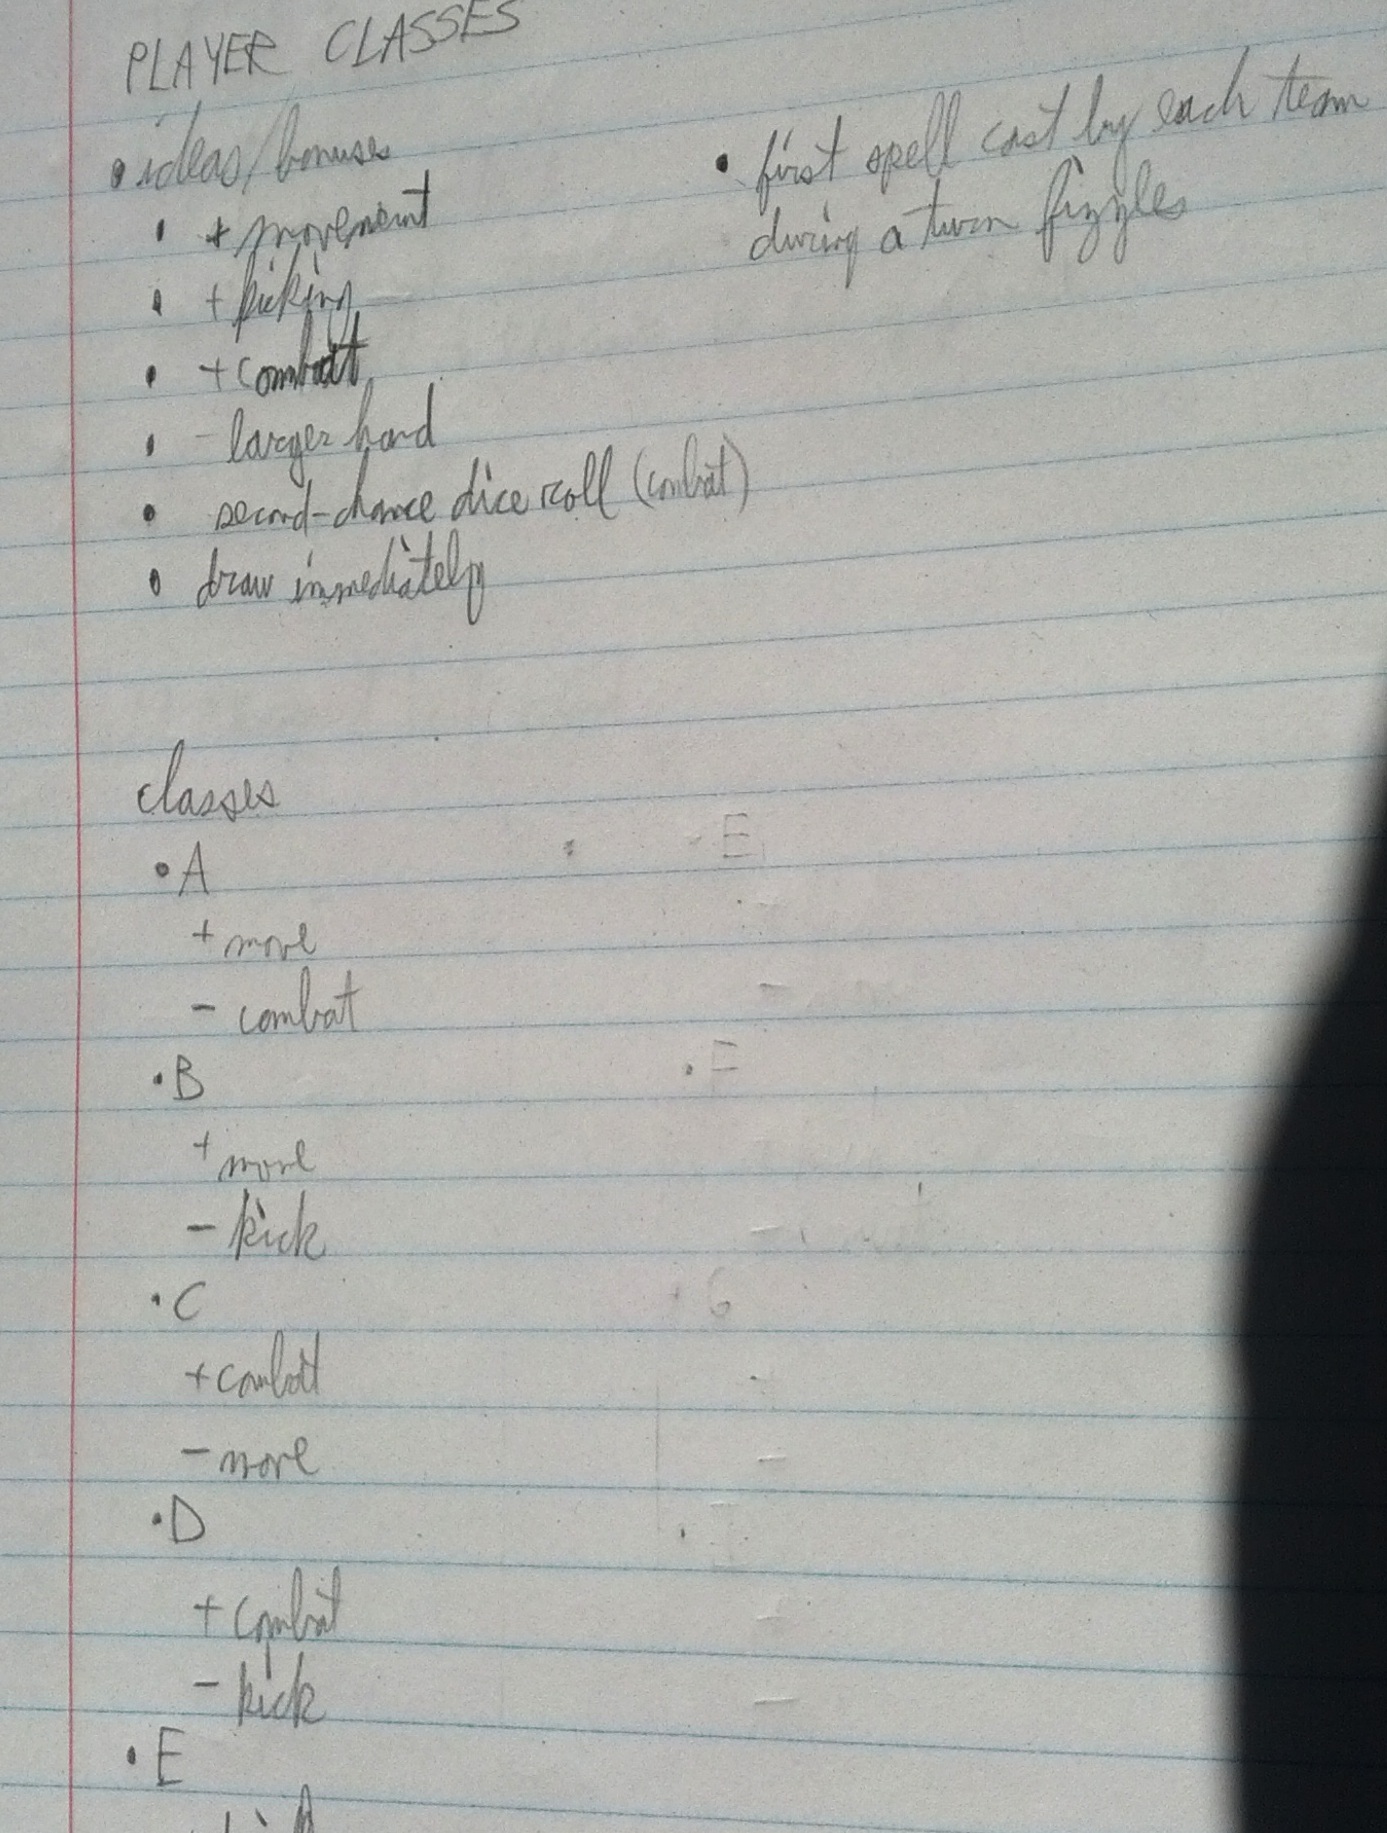 PLAYER CLASSES
• ideas/bonuses
• + movement
• + kicking
• + combat
• - larger hand
• second-chance dice roll (combat)
• draw immediately
• first spell cast by each team
during a turn fizzles
classes
• A
+ move
- combat
• B
+ move
- kick
• C
+ combat
- move
• D
+ combat
- kick
• E
• E
• F
• G